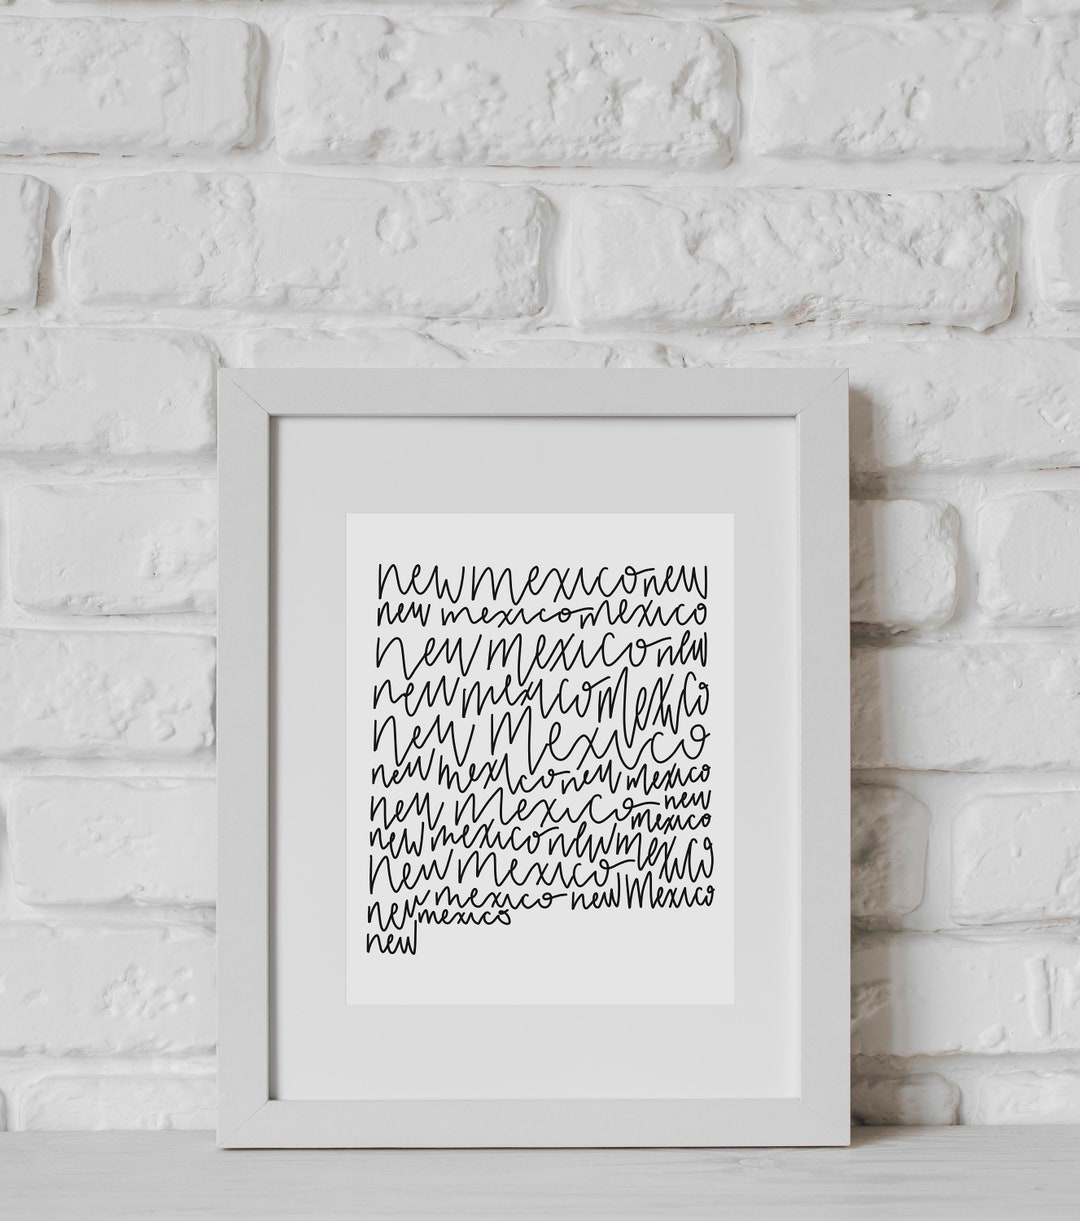 new mexico new
new mexico mexico
new mexico new
new mexico mexico
new mexico
new mexico new mexico
new mexico new
mexico
new mexico new mexico
new mexico
new mexico new mexico
mexico
new